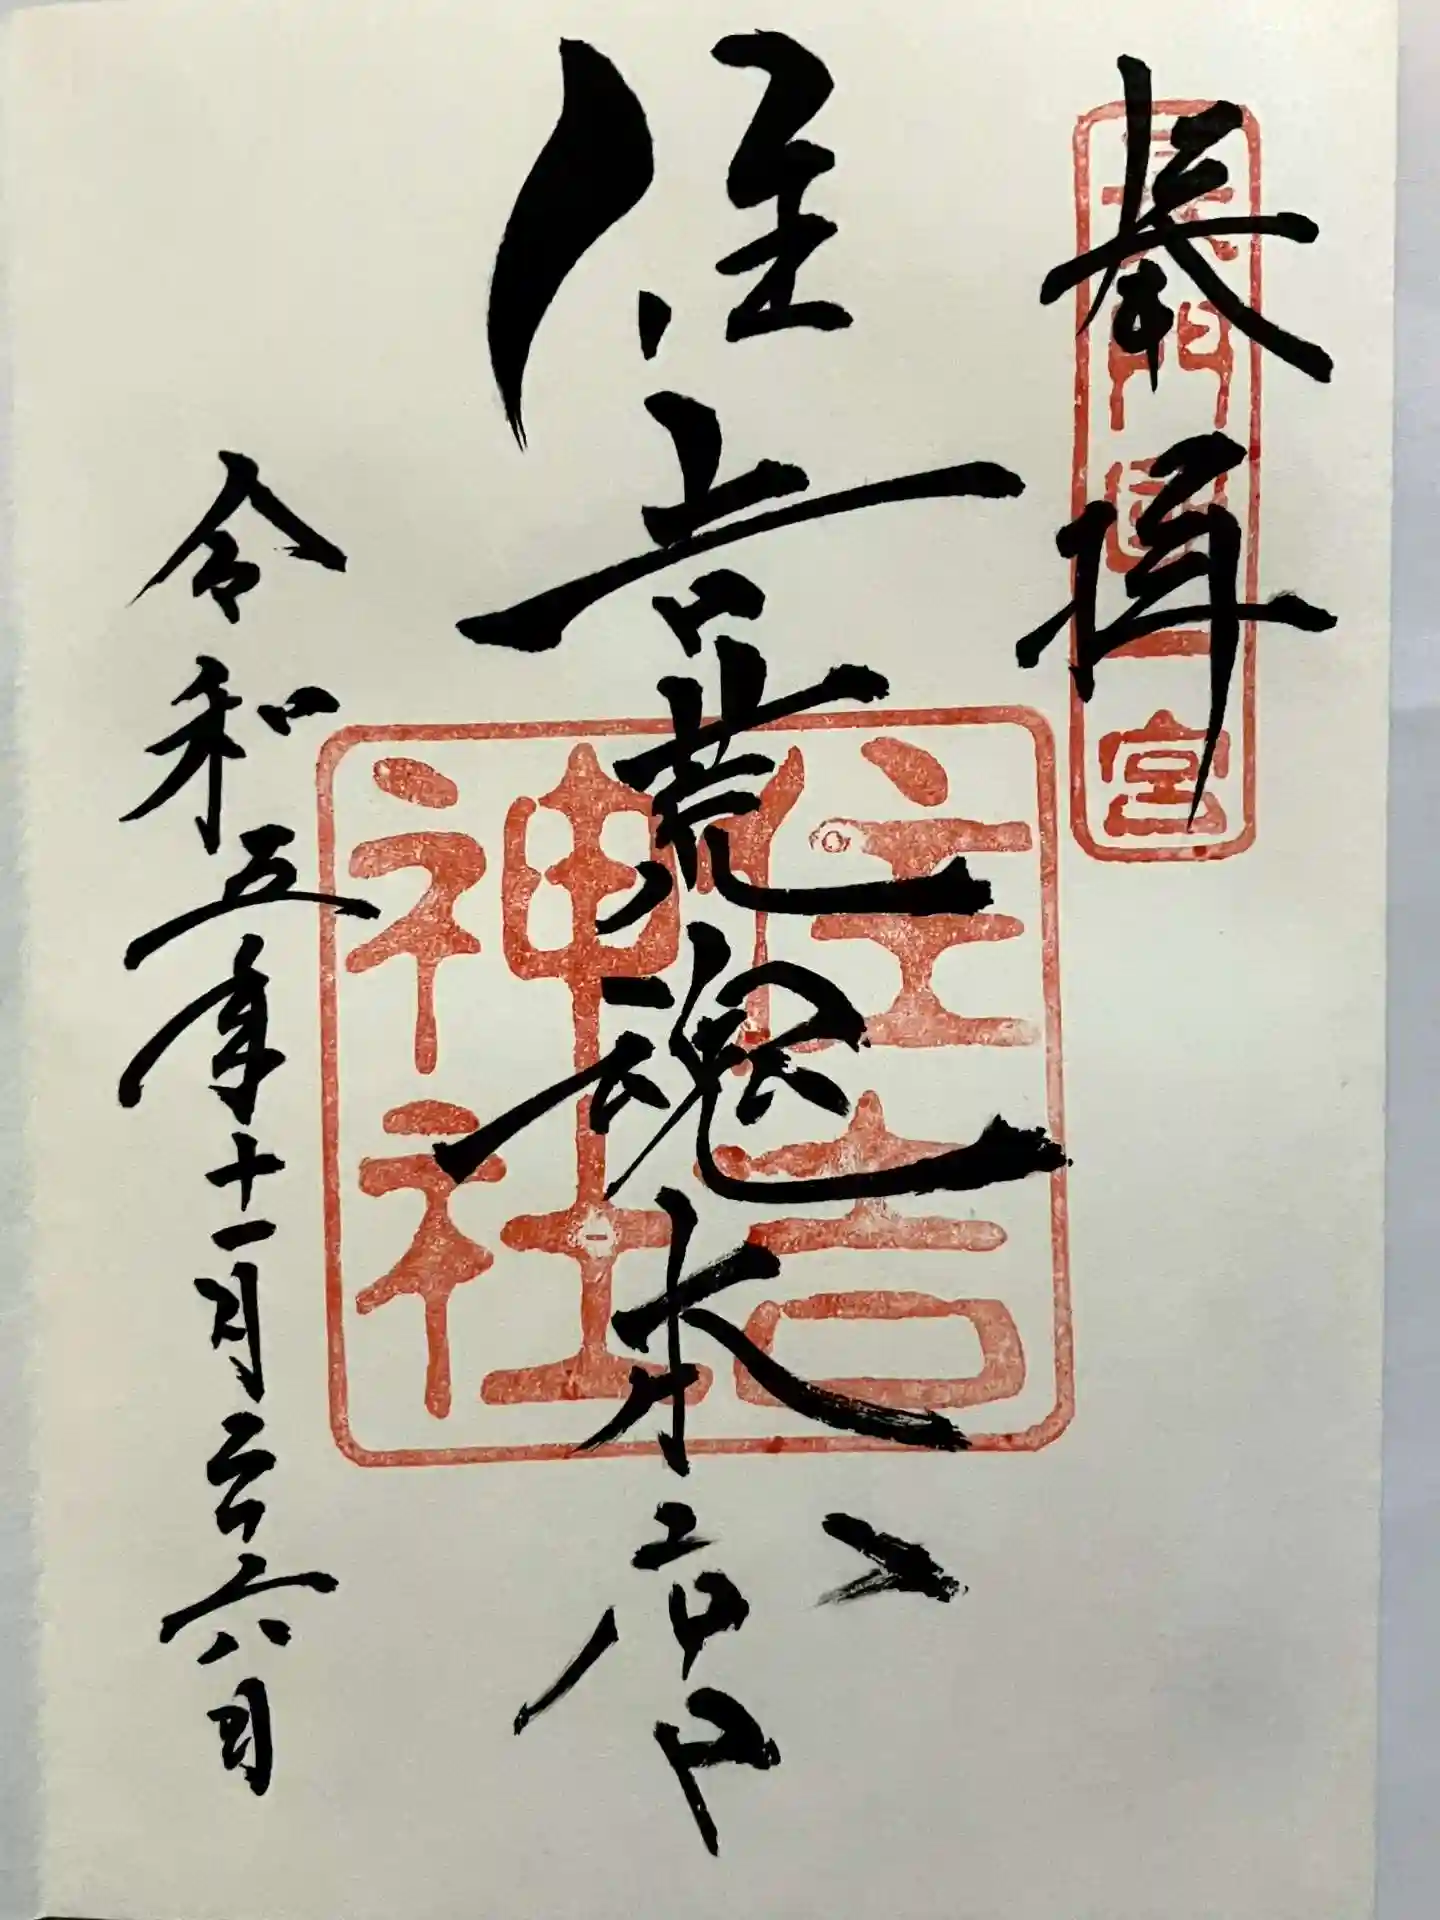 奉拝
長門國一宮
住吉荒魂本宮
住吉
神社
令和五年十一月二十六日